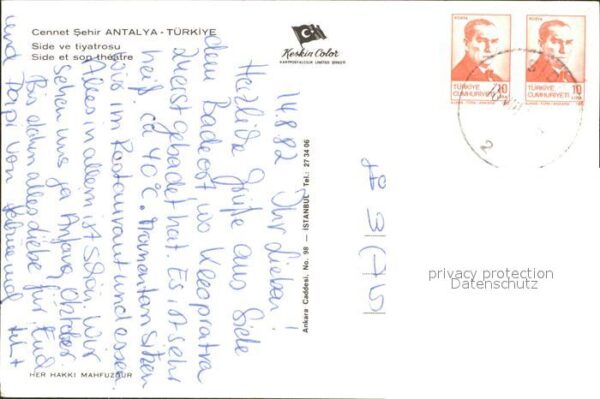 Cennet Şehir ANTALYA - TÜRKİYE
Side ve tiyatrosu
Side et son théâtre
Keskin Color
KARTPOSTALCILIK LIMITED ŞİRKETİ
POSTA
10
LİRA
TÜRKİYE
CUMHURİYETİ
POSTA
10
LİRA
TÜRKİYE
CUMHURİYETİ
14.8.82
Ihr Lieben!
Herzliche Grüße aus Side
dem Badeort wo Kleopatra
zuerst gebadet hat. Es ist sehr
heiß ca 40°C. Momentan sitzen
wir im Restaurant und essen.
Alles in allem ist schön. Wir
sehen uns ja Anfang Oktober
Bis dahin alles Liebe für Euch
und
von
Ankara Caddesi, No. 98 — İSTANBUL Tel.: 27 34 06
HER HAKKI MAHFUZDUR
privacy protection
Datenschutz